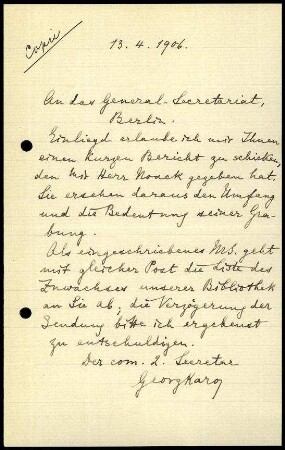 Capri
13. 4. 1906.
An das General-Secretariat,
Berlin.
Einliegd erlaube ich mir Ihnen
einen kurzen Bericht zu schicken,
den mir Herr Noack gegeben hat.
Sie ersehen daraus den Umfang
und die Bedeutung seiner Gra-
bung.
Als eingeschriebenes MS. geht
mit gleicher Post die Liste des
Zuwachses unserer Bibliothek
an Sie ab; die Verzögerung der
Sendung bitte ich ergebenst
zu entschuldigen.
Der com. 2. Secretar
Georg Karo